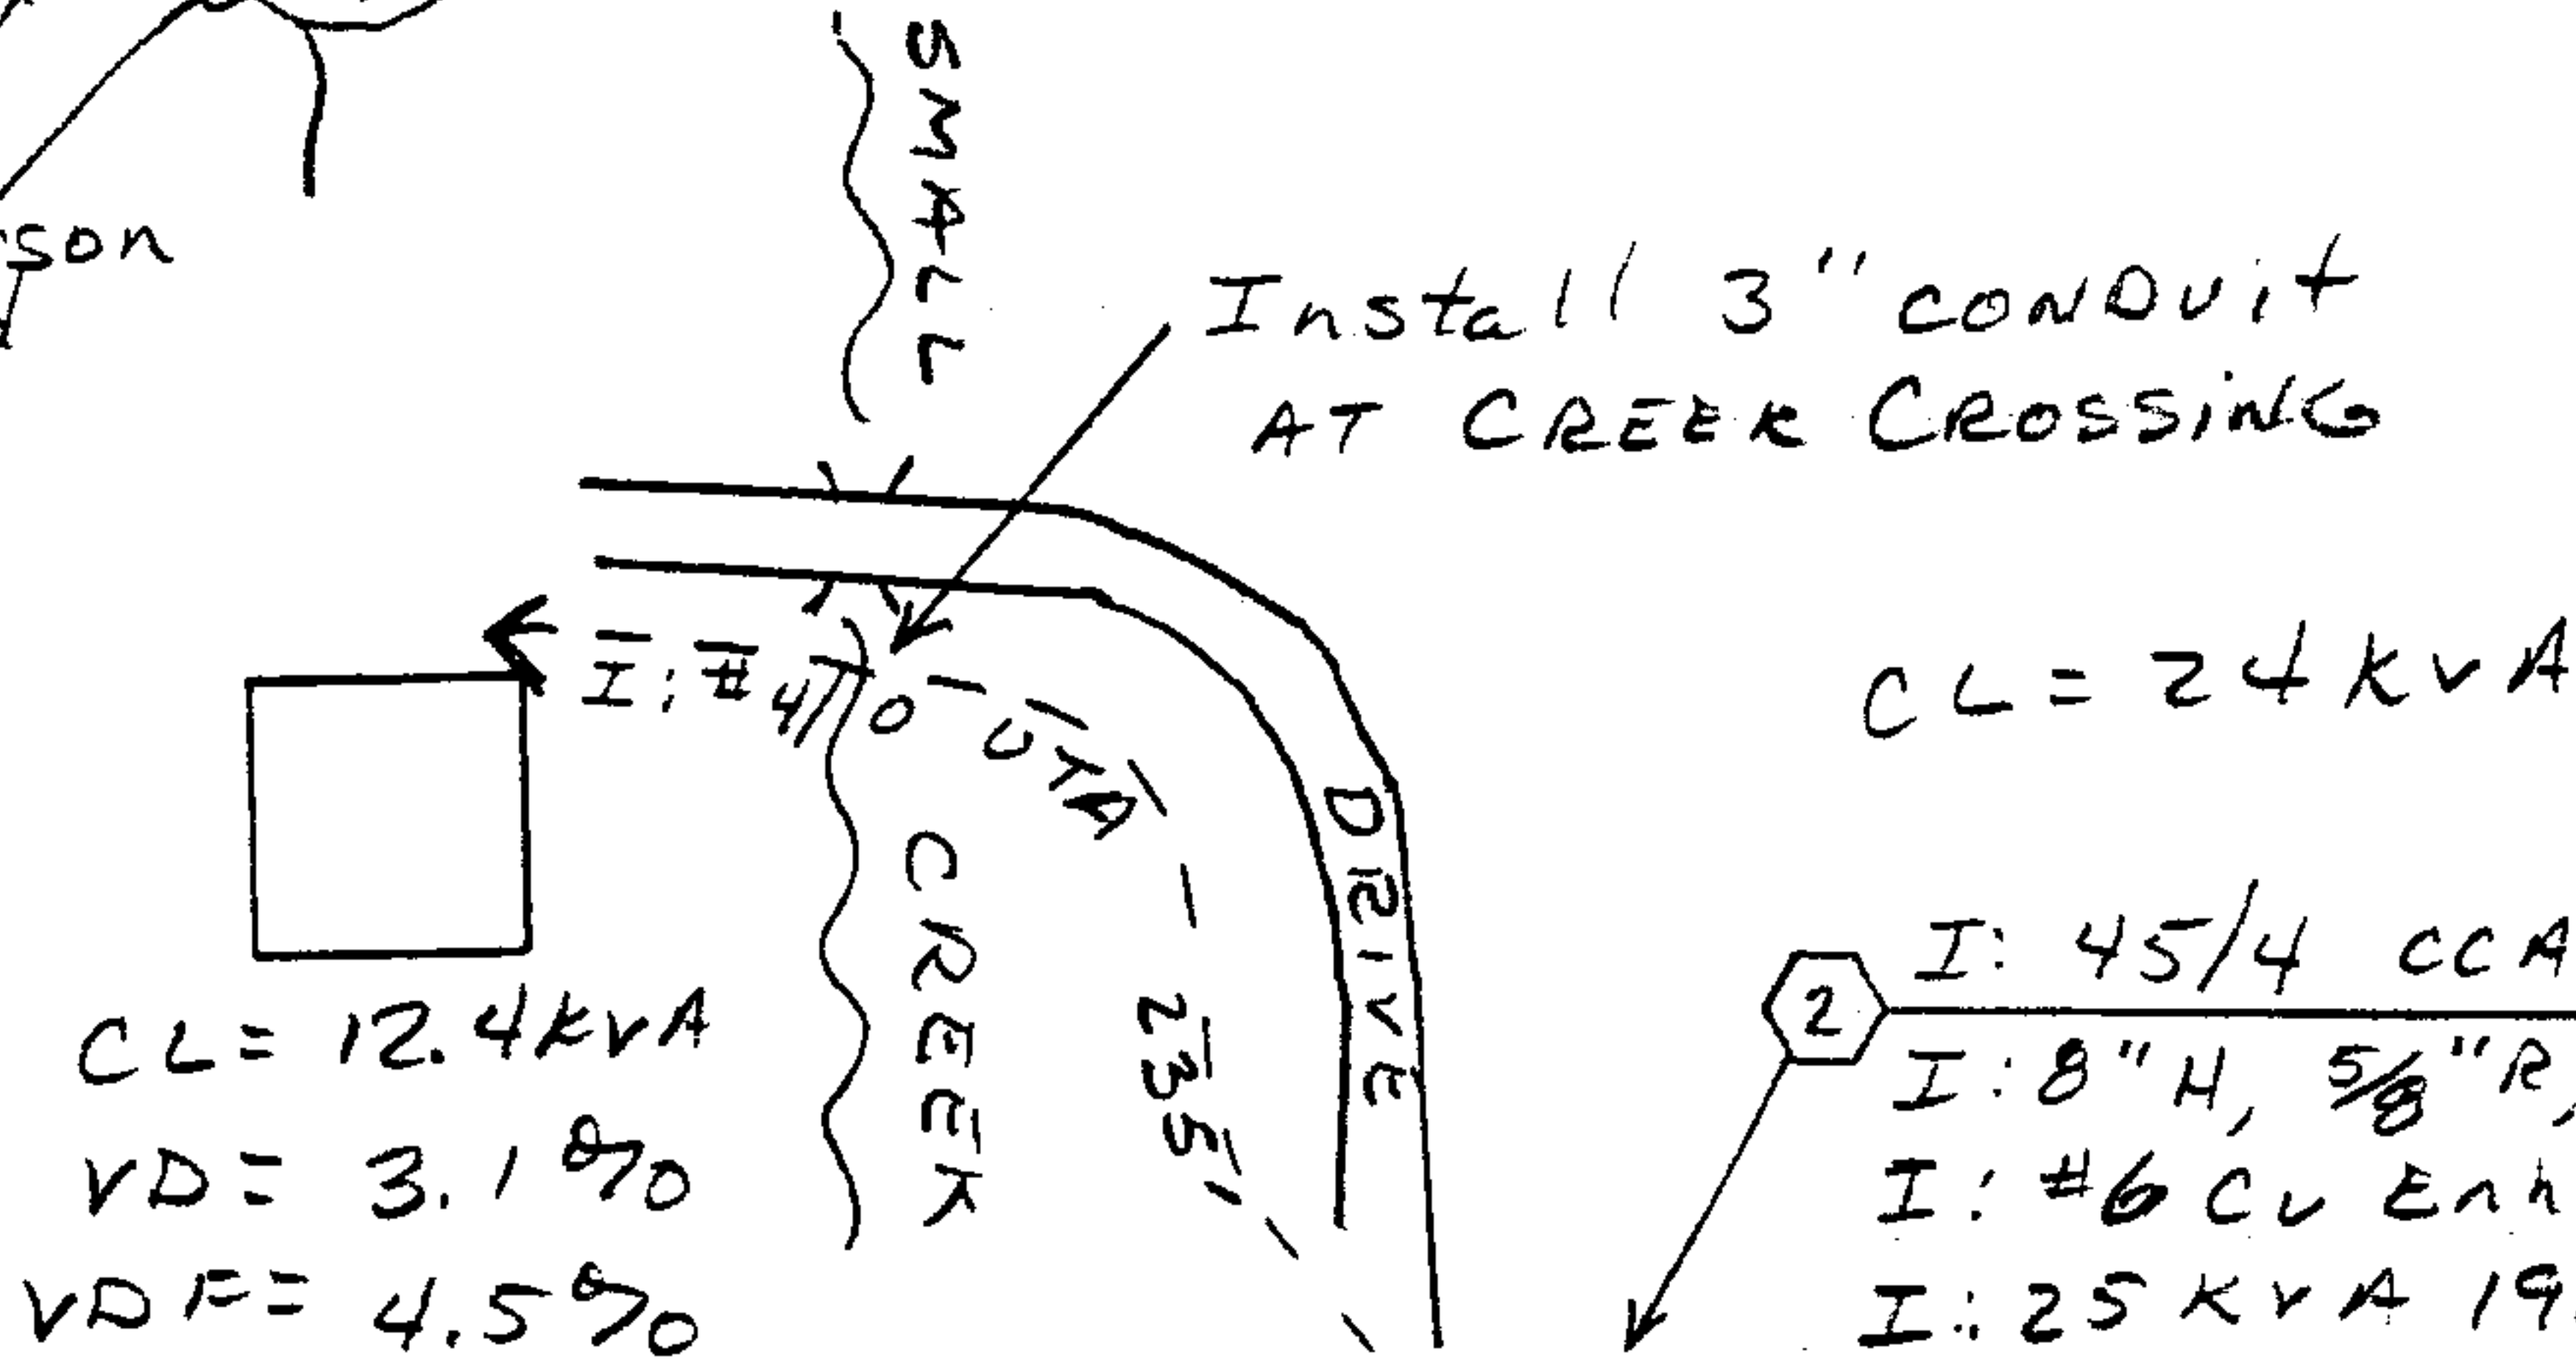 son
SMALL
Install 3" CONDUit
AT CREEK CROSSiNG
I: #4/0 UTA - 235'
DRIVE
CREEK
CL = 12.4 kVA
VD = 3.1 %
VDF = 4.5 %
CL = 24 kVA
2
I: 45/4 CCA
I: 8" H, 5/8" R,
I: #6 Cu Enh
I: 25 KVA 19